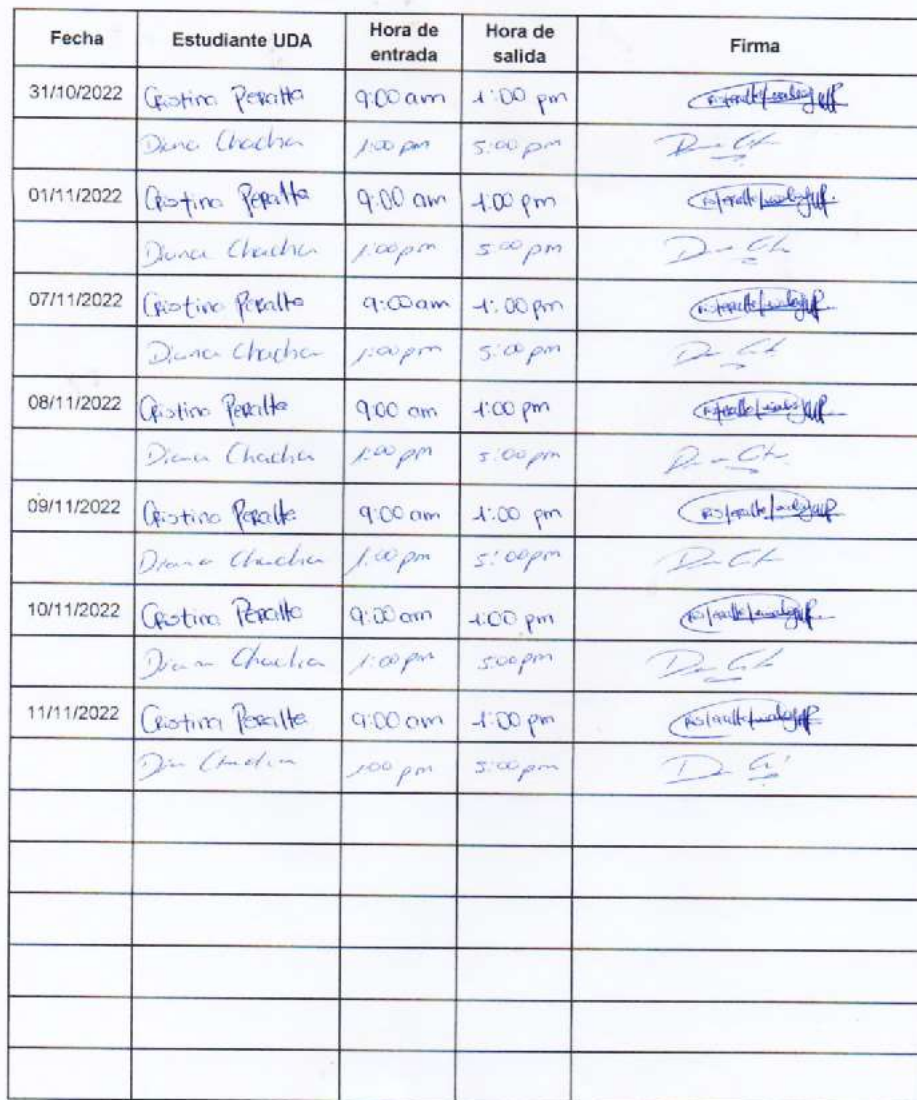 Fecha Estudiante UDA Hora de entrada Hora de salida Firma
31/10/2022 Cristina Peralta 9:00 am 1:00 pm
Diana Chacha 1:00 pm 5:00 pm
01/11/2022 Cristina Peralta 9:00 am 1:00 pm
Diana Chacha 1:00 pm 5:00 pm
07/11/2022 Cristina Peralta 9:00 am 1:00 pm
Diana Chacha 1:00 pm 5:00 pm
08/11/2022 Cristina Peralta 9:00 am 1:00 pm
Diana Chacha 1:00 pm 5:00 pm
09/11/2022 Cristina Peralta 9:00 am 1:00 pm
Diana Chacha 1:00 pm 5:00 pm
10/11/2022 Cristina Peralta 9:00 am 1:00 pm
Diana Chacha 1:00 pm 5:00 pm
11/11/2022 Cristina Peralta 9:00 am 1:00 pm
Chacha 1:00 pm 5:00 pm